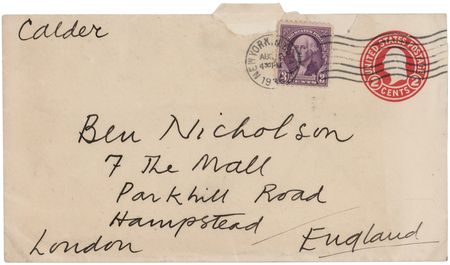 Calder
NEW YORK, N.Y.
AUG
430PM
193
3 3
UNITED STATES POSTAGE
2 CENTS 2
Ben Nicholson
7 The Mall
Parkhill Road
Hampstead
London England